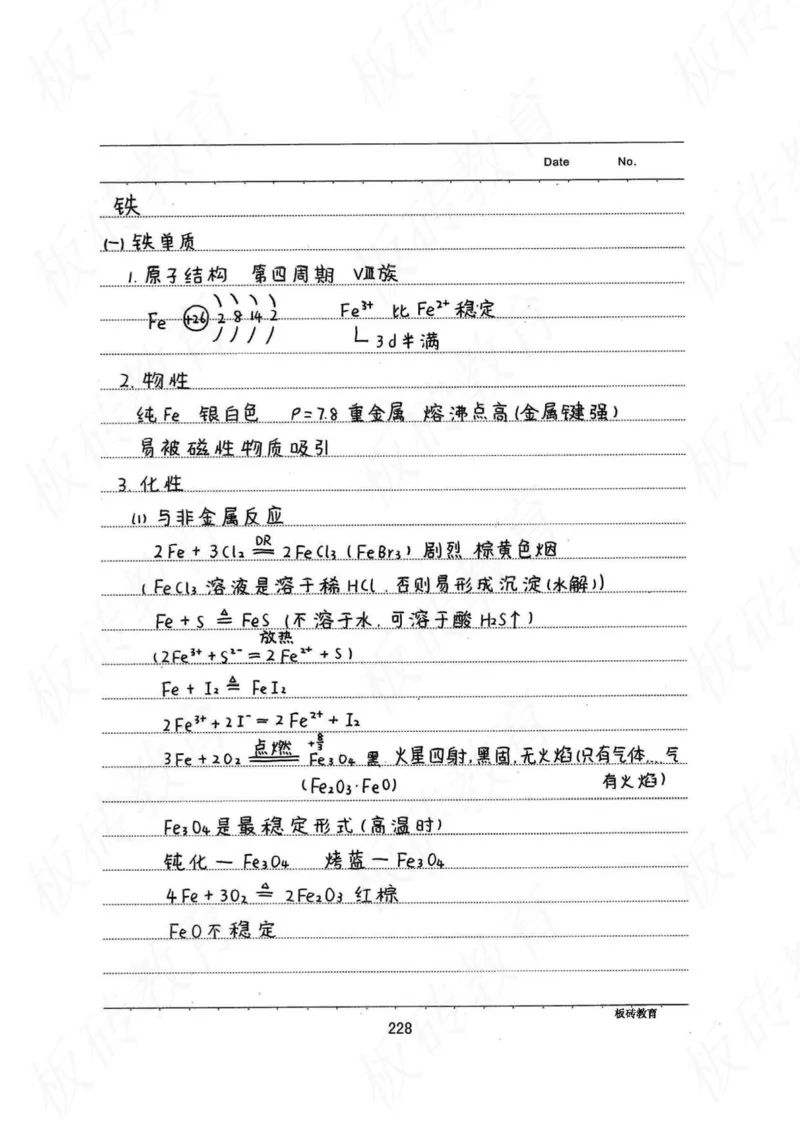 Date No.
铁
(一) 铁单质
1. 原子结构 第四周期 VIII族
Fe +26 2 8 14 2 Fe³⁺ 比 Fe²⁺ 稳定
3d半满
2. 物性
纯Fe 银白色 ρ=7.8 重金属 熔沸点高(金属键强)
易被磁性物质吸引
3. 化性
(1) 与非金属反应
2Fe + 3Cl₂ DR═ 2FeCl₃ (FeBr₃) 剧烈 棕黄色烟
(FeCl₃ 溶液是溶于稀HCl,否则易形成沉淀(水解))
Fe + S △═ FeS (不溶于水,可溶于酸 H₂S↑)
放热
(2Fe³⁺ + S²⁻ = 2Fe²⁺ + S)
Fe + I₂ △═ FeI₂
2Fe³⁺ + 2I⁻ = 2Fe²⁺ + I₂
3Fe + 2O₂ 点燃═ +8/3 Fe₃O₄ 黑 火星四射,黑固,无火焰(只有气体....气
(Fe₂O₃·FeO) 有火焰)
Fe₃O₄是最稳定形式(高温时)
钝化 — Fe₃O₄ 烤蓝 — Fe₃O₄
4Fe + 3O₂ △═ 2Fe₂O₃ 红棕
FeO不稳定
板砖教育
228